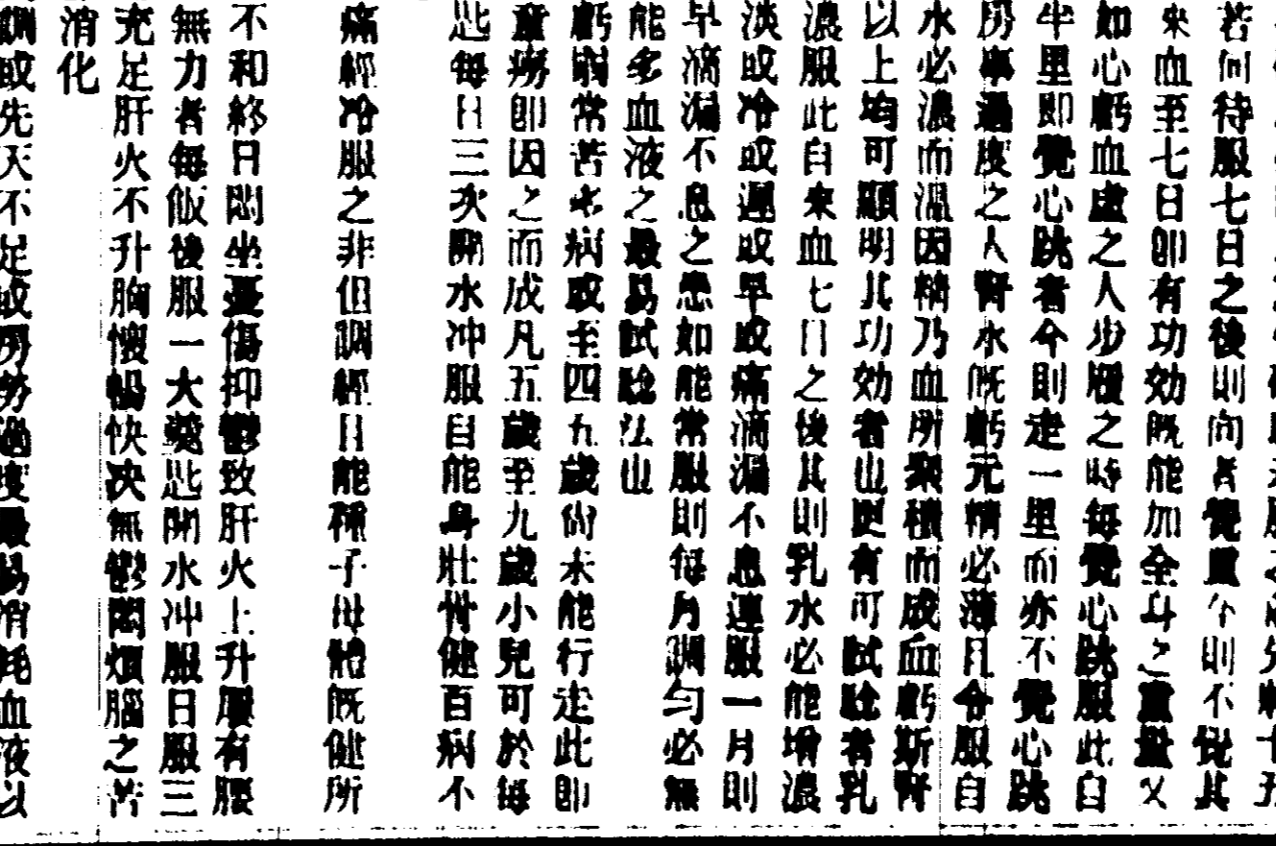 若何待服七日之後則向者覺重今則不覺其
來血至七日卽有功效既能加全斗之重量又
如心虧血虛之人少履之時每覺心跳服此自
半里卽覺心跳者今則走一里而亦不覺心跳
房事過度之人腎水既虧元精必薄且令服自
水必濃而溫因精乃血所聚積而成血虧斯腎
以上均可顯明其功効者也更有可試驗者乳
濃服此自來血七日之後其則乳水必能增濃
淡或冷或遲或早或痛滴漏不息連服一月則
早滴漏不息之患如能常服則每月調勻必無
能多血液之最易試驗法也
虧弱常苦求病或至四五歲尚未能行走此卽
童癆卽因之而成凡五歲至九歲小兒可於每
匙每日三次開水冲服自能身壯體健百病不
痛經冷服之非但調經且能種子母體既健所
不和終日悶坐憂傷抑鬱致肝火上升服有腰
無力者每飯後服一大茶匙開水冲服日服三
充足肝火不升胸懷暢快決無鬱悶煩惱之苦
消化
調或先天不足或房勞過度最易消耗血液以